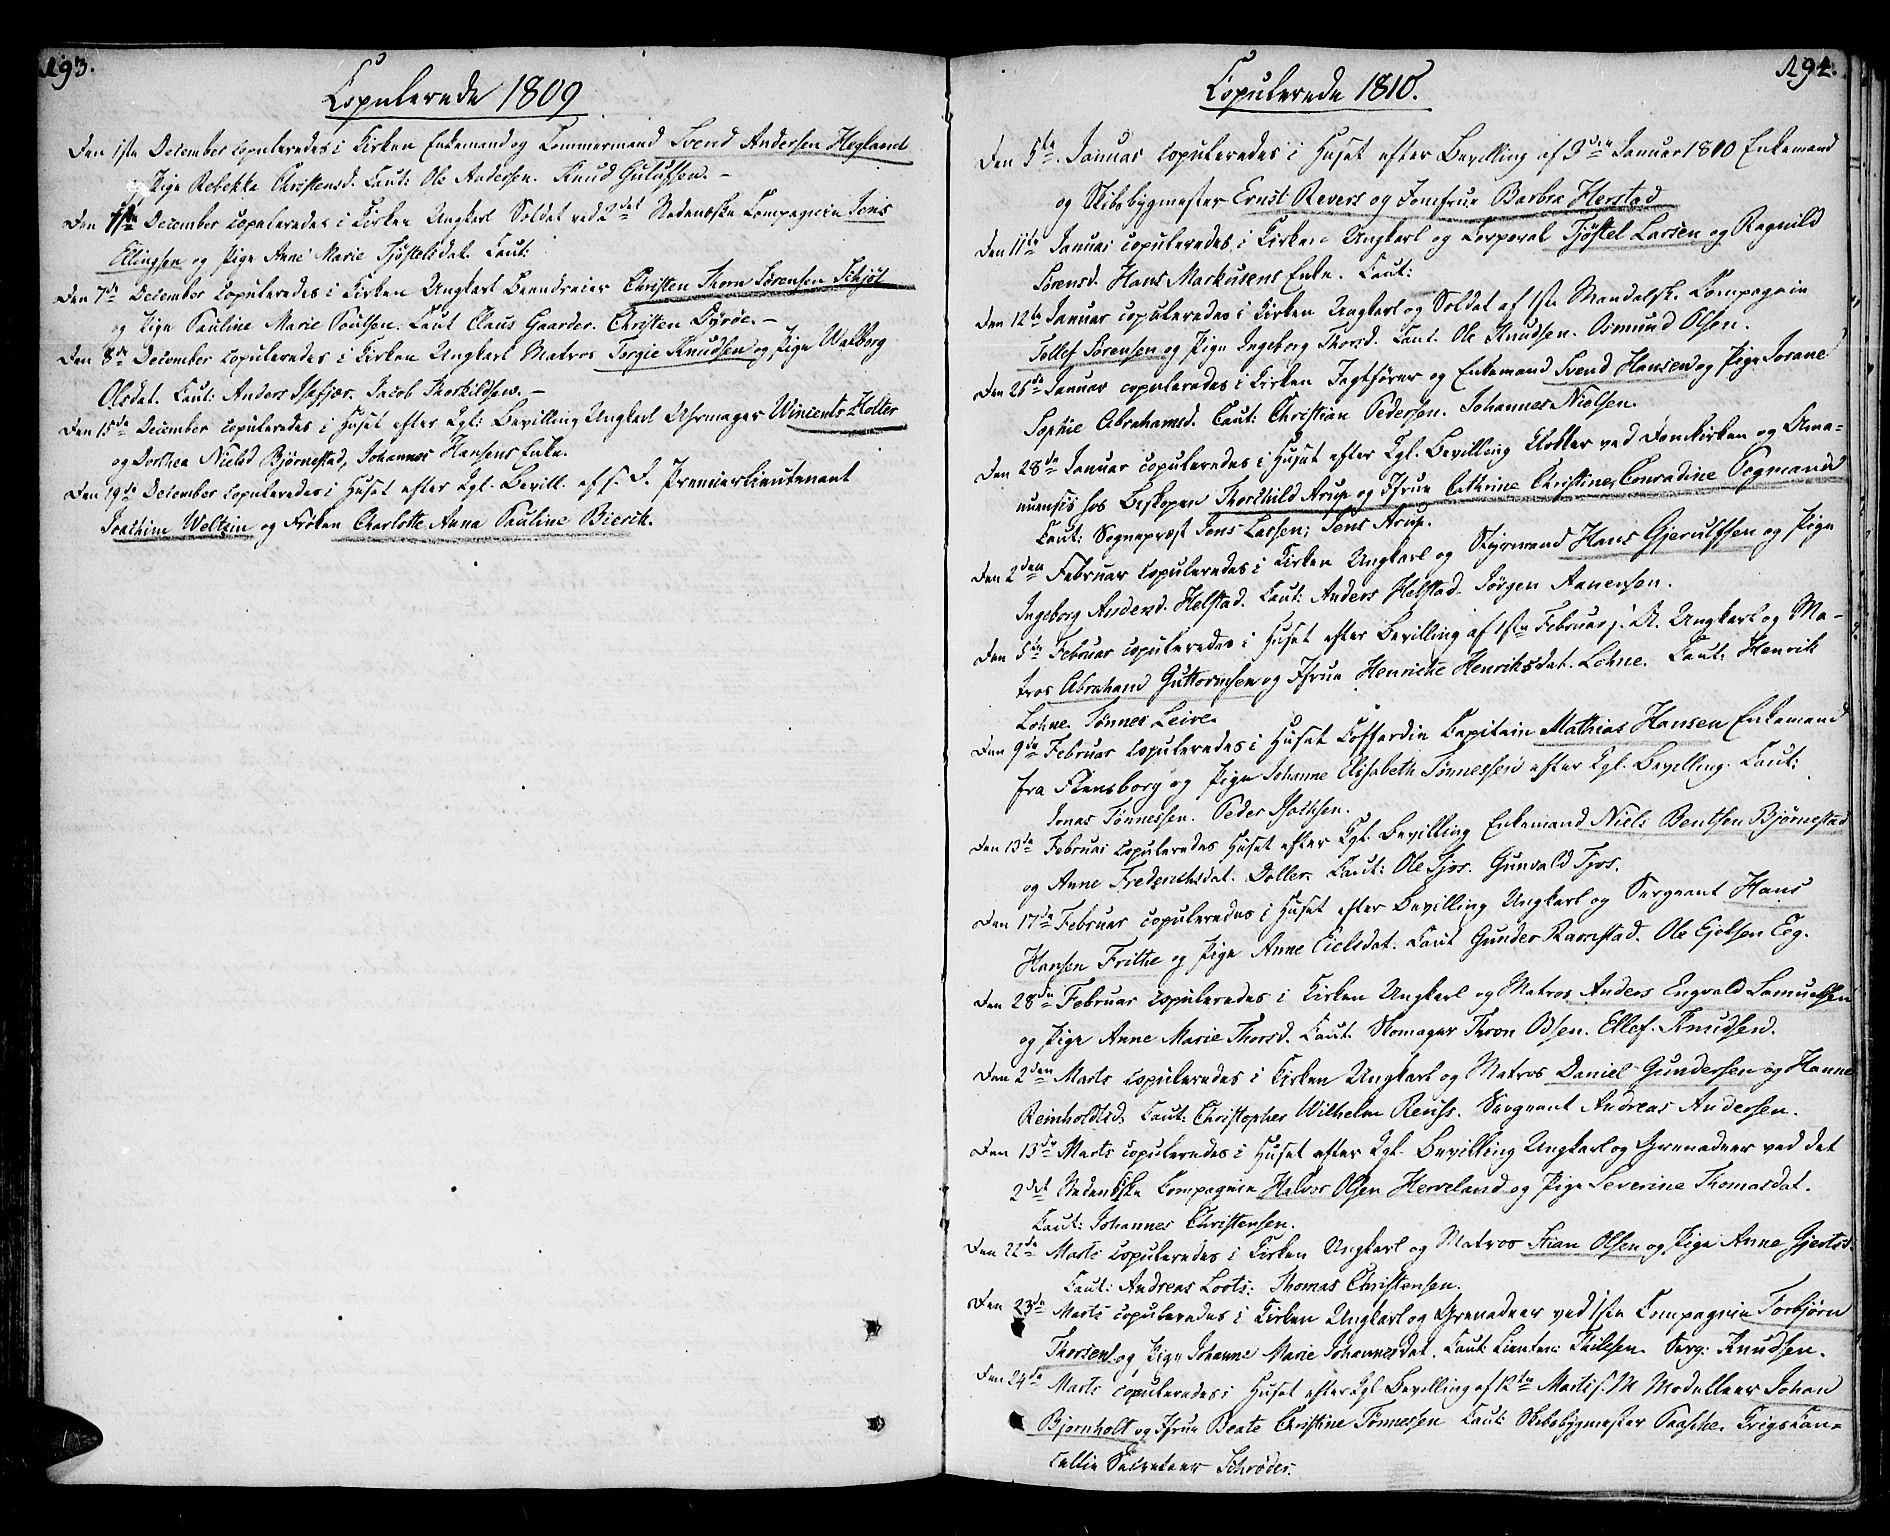 193.
Copulerede 1809
Den 1ste December copuleredes i Kirken Enkemand og Tømmermand Svend Andersen Hegland
og Pige Rebekka Christensd. Caut: Ole Andersen. Knud Gulufsen. –
Den December copuleredes i Kirken Ungkarl Soldat ved 2det Nedenæske Compagnie Jens
Ellingsen og Pige Anne Marie Tjøstelsdat. Caut:
Den 7de December copuleredes i Kirken Ungkarl Christen Thorn Sørensen Schjøt
og Pige Pauline Marie Poulsen. Caut Claus Gaarder. Christen Dyrøe. –
Den 8de December copuleredes i Kirken Ungkarl Matros Torgie Knudsen og Pige Walborg
Olsdat. Caut: Anders Isefjær. Jacob Therkildsen. –
Den 15de December copuleredes i Huset efter Kgl: Bevilling Ungkarl Uhrmager Wincents Holter
og Dorthea Nielsd Bjørnestad, Johannes Hansens Enke.
Den 19de December copuleredes i Huset efter Kgl. Bevill. af Premierlieutenant
Joachim Weltzin og Frøken Charlotte Anna Pauline Bierck.
194.
Copulerede 1810.
Den 5te Januar copuleredes i Huset efter Bevilling af 3die Januar 1810 Enkemand
og Skibsbygmester Ernst Revers og Jomfrue Barbra Herstad
Den 11te Januar copuleredes i Kirken Ungkarl og Corporal Tjøstel Larsen og Ragnild
Sørensd. Hans Markusens Enke. Caut:
Den 12te Januar copuleredes i Kirken Ungkarl og Soldat af 1ste Mandalsk. Compagnie
Tollef Sørensen og Pige Ingeborg Thorsd. Caut. Ole Knudsen. Osmund Olsen.
Den 26de Januar copuleredes i Kirken Jagtfører og Enkemand Svend Hansen og Pige Sorane
Sophie Abrahamsd. Caut: Christian Pedersen. Johannes Nielsen.
Den 28de Januar copuleredes i Huset efter Kgl. Bevilling Klokker ved Domkirken og Ama-
nuensis hos Biskopen Thorkild Arup og Jfrue Cathrine Christine Conradine Tegmand
Caut: Sognepræst Jens Lassen; Jens Arup.
Den 2den Februar copuleredes i Kirken Ungkarl og Styrmand Hans Gjerulfsen og Pige
Ingeborg Andersd. Helstad. Caut: Anders Helstad. Jørgen Aanensen.
Den 5te Februar copuleredes i Huset efter Bevilling af 1ste Februar j. A. Ungkarl og Ma-
tros Abraham Guttormsen og Jfrue Henricke Henriksdat. Lohne. Caut: Henrik
Lohne. Tønnes Leire.
Den 9de Februar copuleredes i Huset Coffardie Capitain Mathias Hansen Enkemand
fra Flensborg og Pige Johanne Elisabeth Tønnessen efter Kgl. Bevilling. Caut:
Jonas Tønnessen. Peder Isachsen.
Den 13de Februar copuleredes Huset efter Kgl. Bevilling Enkemand Niels Bentsen Bjørnestad
og Anne Frederichsdat. Doller. Caut: Ole Tjos. Gunvald Tjos.
Den 17de Februar copuleredes i Huset efter Bevilling Ungkarl og Sergeant Hans
Hansen Frithe og Pige Anne Eielsdat. Caut Gunder Ramstad. Ole Ejelsen Eeg.
Den 28de Februar copuleredes i Kirken Ungkarl og Matros Anders Engvald Samuelsen
og Pige Anne Marie Thorsd. Caut. Skomager Thron Odsen. Ellef Knudsen.
Den 2den Marts copuleredes i Kirken Ungkarl og Matros Daniel Gundersen og Hanne
Reinholdtsd. Caut: Christopher Wilhelm Reuss. Sergeant Andreas Andersen.
Den 13de Marts copuleredes i Huset efter Kgl. Bevilling Ungkarl og Grenadeer ved det
2det Nedenæske Compagnie Halvor Olsen Herveland og Pige Severine Thomasdat.
Caut: Johannes Christensen.
Den 22de Marts copuleredes i Kirken Ungkarl og Matros Stian Olsen og Pige Anne Gjertsd.
Caut: Andreas Loots. Thomas Christensen.
Den 23de Marts copuleredes i Kirken Ungkarl og Grenadeer ved 1ste Compagnie Torbjørn
Thorsen og Pige Johanne Marie Johannesdat. Caut: Lieuten: Serg: Knudsen.
Den 24de Marts copuleredes i Huset efter Kgl. Bevilling af 12te Marts s. M Modelleer Johan
Bjørnholt og Jfrue Beate Christine Tønnesen Caut: Skibsbygmester Paaske. Krigscan-
cellie Secreteer Schrøder.